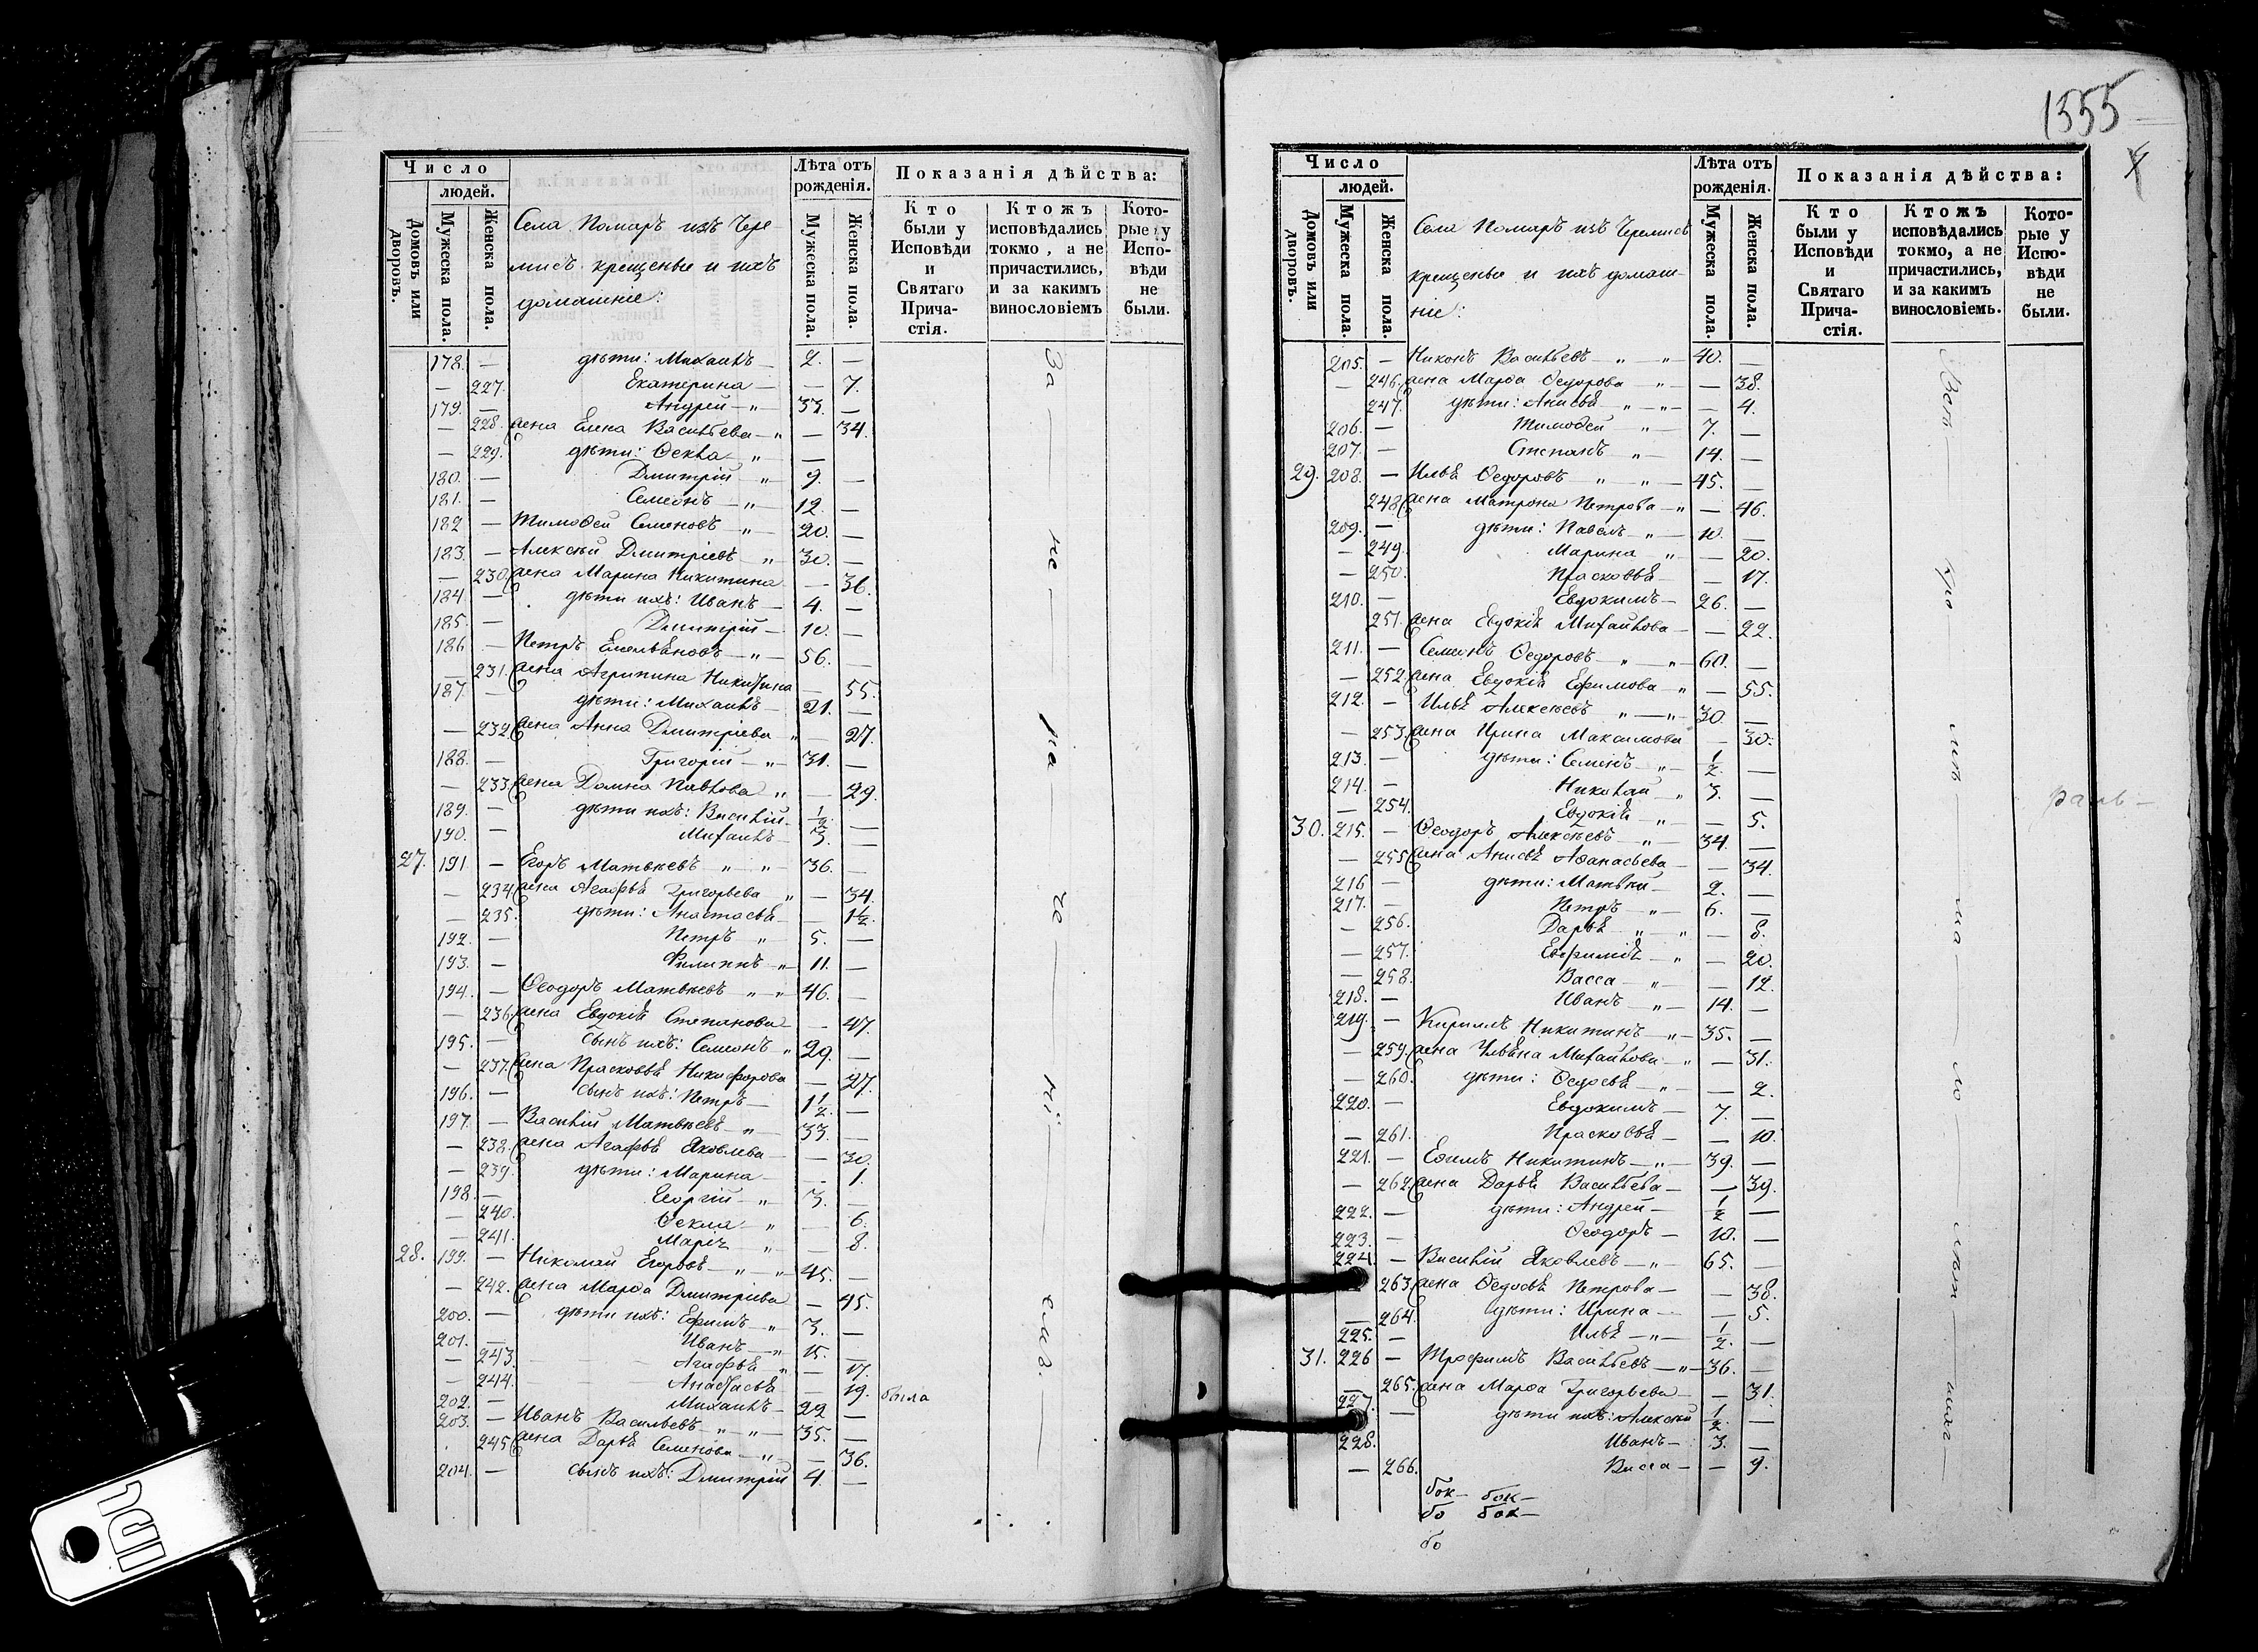 Число
людей.
Домовъ или дворовъ.
Мужеска пола.
Женска пола.
Села Помаръ изъ Чере-
мисъ крещеные и ихъ
домашніе:
Лѣта отъ рожденія.
Мужеска пола.
Женска пола.
Показанія дѣйства:
Кто были у Исповѣди и Святаго Прича-стія.
Ктожъ исповѣдались токмо, а не причастились, и за какимъ винословіемъ
Кото-рые у Испо-вѣди не были.
178. — дѣти: Михаилъ — 2. —
— 227. Екатерина — — 7.
179. — Андрей — „ — 33. —
— 228. жена Елена Васильева — „ — 34.
— 229. дѣти: Ѳекла — „ —
180. — Дмитрій „ — 9. —
181. — Семенъ — „ — 12 —
182 — Тимоѳей Семеновъ — „ — 20. —
183. — Алексѣй Дмитріевъ „ — 30. —
— 230. жена Марина Никитина — — 36.
184. — дѣти ихъ: Иванъ — 4. —
185. — Дмитрій — 10. —
186 — Петръ Емельяновъ — „ — 56. —
— 231. жена Агрипина Никитина — 55.
187. — дѣти: Михаилъ — 21. —
— 232. жена Анна Дмитріева „ — 27.
188. — Григорій — „ — 31. —
— 233. жена Домна Павлова „ — 29.
189. — дѣти ихъ: Василій. 1/2 —
190. — Михаилъ — 3. —
27. 191 — Егоръ Матвѣевъ „ „ 36. —
— 234. жена Агафья Григорьева „ — 34.
— 235. дѣти: Анастасья — — 1½.
192. — Петръ „ — 5. —
193. — Филиппъ — „ — 11. —
194. — Ѳеодоръ Матвѣевъ „ „ 46. —
— 236. жена Евдокія Степанова — 47.
195. — сынъ ихъ: Семенъ „ 29. —
— 237. жена Прасковья Никифорова — 27.
196. — сынъ ихъ: Петръ — 1½. —
197. — Василій Матвѣевъ — „ — 33. —
— 238. жена Агафья Яковлева — — 30.
— 239. дѣти: Марина — — 1.
198. — Георгій — „ — 3. —
— 240. Ѳекла „ — 6.
— 241. Марія „ — 8.
28. 199. — Николай Егоровъ — „ — „ 45. —
— 242. жена Марѳа Дмитріева — 45.
200. — дѣти ихъ: Ефимъ „ 3. —
201. — Иванъ — „ 15. —
— 243. Агафья „ — 17.
— 244. Анастасья — 19. была
202. — Михаилъ — 22 —
203. — Иванъ Васильевъ „ — „ — 35. —
245. жена Дарья Семенова — „ — 36.
204. — сынъ ихъ: Дмитрій 4. —
За — не — ра — че — ні — емъ. —
1555
Число
людей.
Домовъ или дворовъ.
Мужеска пола.
Женска пола.
Села Помаръ изъ Черемисъ
крещеные и ихъ домаш-
ніе:
Лѣта отъ рожденія.
Мужеска пола.
Женска пола.
Показанія дѣйства:
Кто были у Исповѣди и Святаго Прича-стія.
Ктожъ исповѣдались токмо, а не причастились, и за какимъ винословіемъ.
Кото-рые у Испо-вѣди не были.
205. — Никонъ Васильевъ — „ — „ — 40. —
— 246. жена Марѳа Ѳедорова — „ — — 38.
247. дѣти: Анисья — „ — „ — — 4.
206. — Тимоѳей „ — 7. —
207. — Степанъ „ — 14. —
29. 208. — Илья Ѳедоровъ „ — „ — 45. —
248. жена Матрона Петрова — „ — 46.
209. — дѣти: Павелъ — „ — 10. —
— 249. Марина „ — — 20.
— 250. Прасковья — — 17.
210. — Евдокимъ — 26. —
251. жена Евдокія Михайлова — — 22.
211. — Семенъ Ѳедоровъ — „ — „ — 60. —
— 252. жена Евдокія Ефимова „ — 55.
212. — Илья Алексѣевъ „ — „ — 30. —
— 253. жена Ирина Максимова — 30.
213. — дѣти: Семенъ — „ — 1/2 —
214. — Николай — „ 3. —
— 254. Евдокія — „ — 5.
30. 215. — Ѳеодоръ Алексѣевъ — „ — 34. —
— 255. жена Анисья Аѳанасьева — — 34.
216 — дѣти: Матвѣй — 2. —
217. — Петръ — „ — 6. —
— 256. Дарья „ — „ — 8.
— 257. Евфимія — „ — 20.
— 258. Васса — „ — 12.
218. — Иванъ — „ — 14. —
219. — Кириллъ Никитинъ — „ — 35. —
— 259. жена Ульяна Михайлова — „ — 31.
— 260. дѣти: Ѳедосья — „ — 2.
220. — Евдокимъ — 7. —
— 261. Прасковья — — 10.
221. — Ефимъ Никитинъ — „ — 39. —
— 262. жена Дарья Васильева — — 39.
222. — дѣти: Андрей — 1/2 —
223. — Ѳеодоръ — 10. —
224. — Василій Яковлевъ — „ — 65. —
263. жена Ѳедосья Петрова — — 38.
— 264. дѣти: Ирина — — 5.
225. — Илья — „ — 1/2. —
31. 226 — Трофимъ Васильевъ — „ — 36. —
— 265. жена Марѳа Григорьева — — 31.
227. — дѣти ихъ: Алексѣй 1/2. —
228. Иванъ — 3. —
— 266. Васса — — 9.
бок — бок —
бо бок —
бо